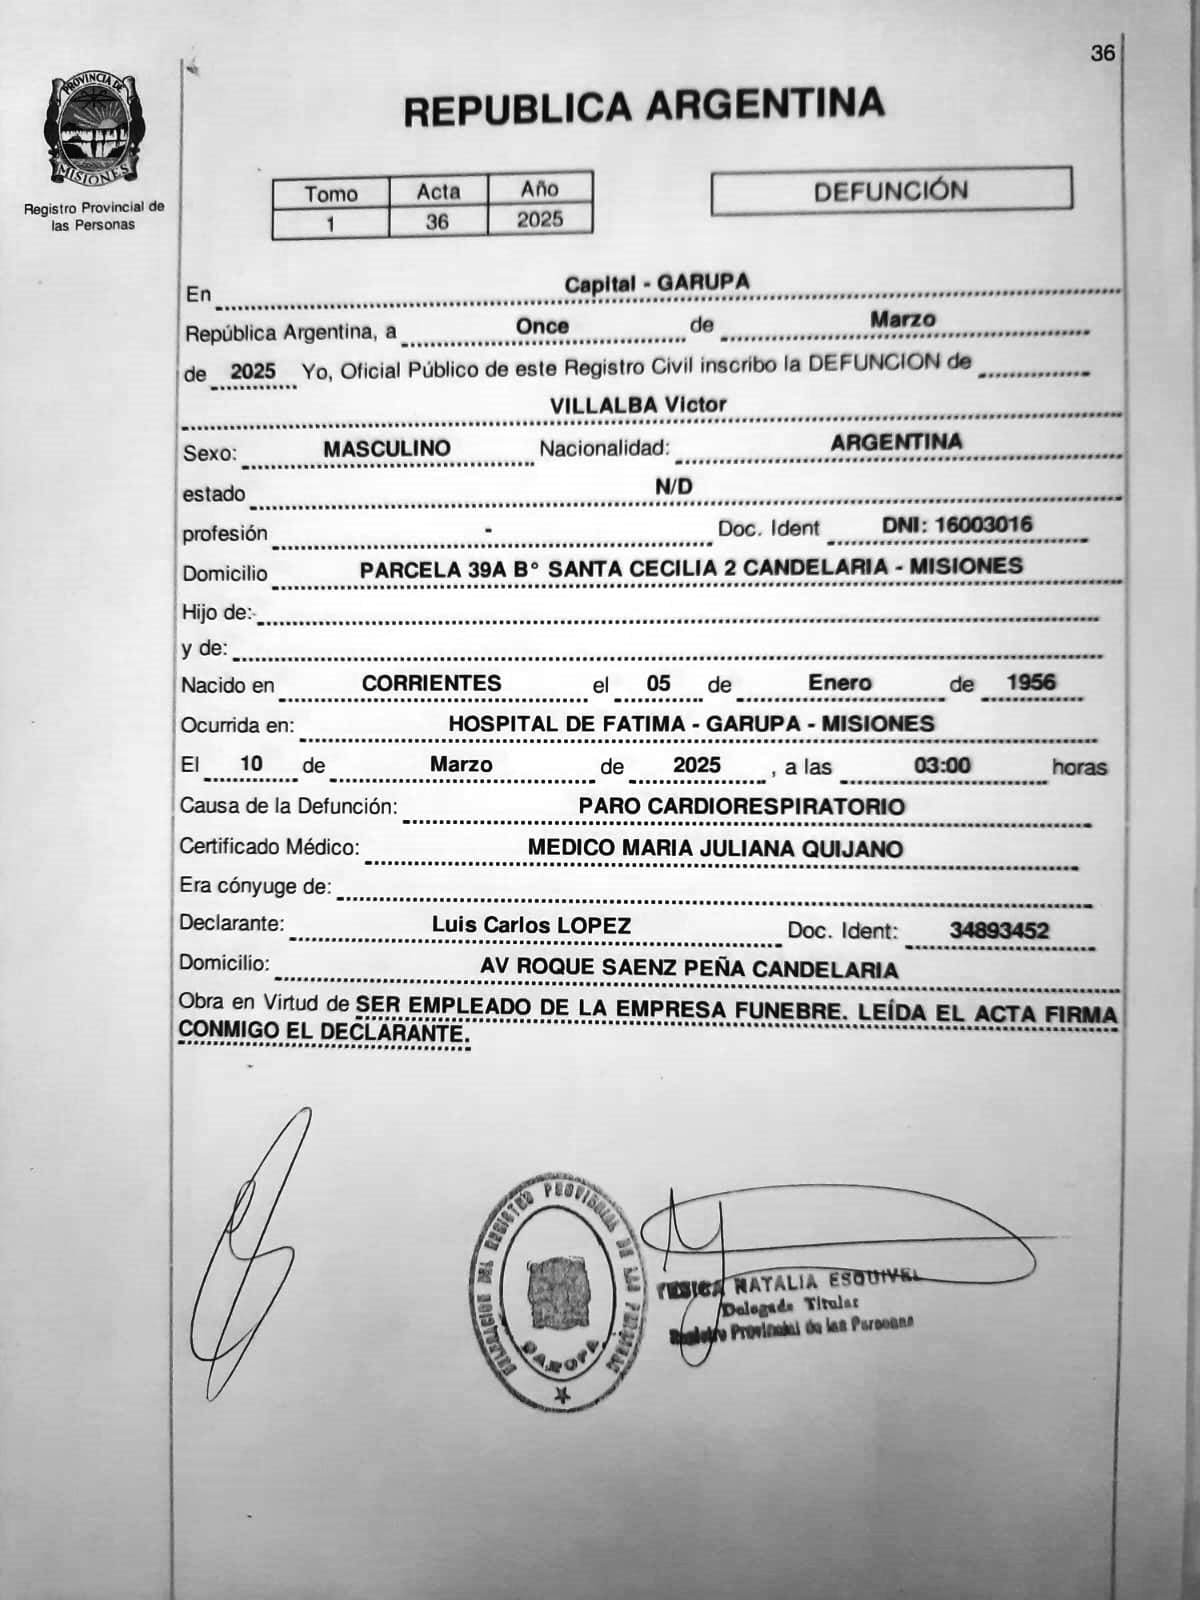 36
PROVINCIA DE
MISIONES
Registro Provincial de
las Personas
REPUBLICA ARGENTINA
Tomo Acta Año
1 36 2025
DEFUNCIÓN
En Capital - GARUPA
República Argentina, a Once de Marzo
de 2025 Yo, Oficial Público de este Registro Civil inscribo la DEFUNCION de
VILLALBA Victor
Sexo: MASCULINO Nacionalidad: ARGENTINA
estado N/D
profesión - Doc. Ident DNI: 16003016
Domicilio PARCELA 39A B° SANTA CECILIA 2 CANDELARIA - MISIONES
Hijo de:
y de:
Nacido en CORRIENTES el 05 de Enero de 1956
Ocurrida en: HOSPITAL DE FATIMA - GARUPA - MISIONES
El 10 de Marzo de 2025 , a las 03:00 horas
Causa de la Defunción: PARO CARDIORESPIRATORIO
Certificado Médico: MEDICO MARIA JULIANA QUIJANO
Era cónyuge de:
Declarante: Luis Carlos LOPEZ Doc. Ident: 34893452
Domicilio: AV ROQUE SAENZ PEÑA CANDELARIA
Obra en Virtud de SER EMPLEADO DE LA EMPRESA FUNEBRE. LEÍDA EL ACTA FIRMA
CONMIGO EL DECLARANTE.
DELEGACION DEL REGISTRO PROVINCIAL DE LAS PERSONAS
GARUPA
YESICA NATALIA ESQUIVEL
Delegada Titular
Registro Provincial de las Personas